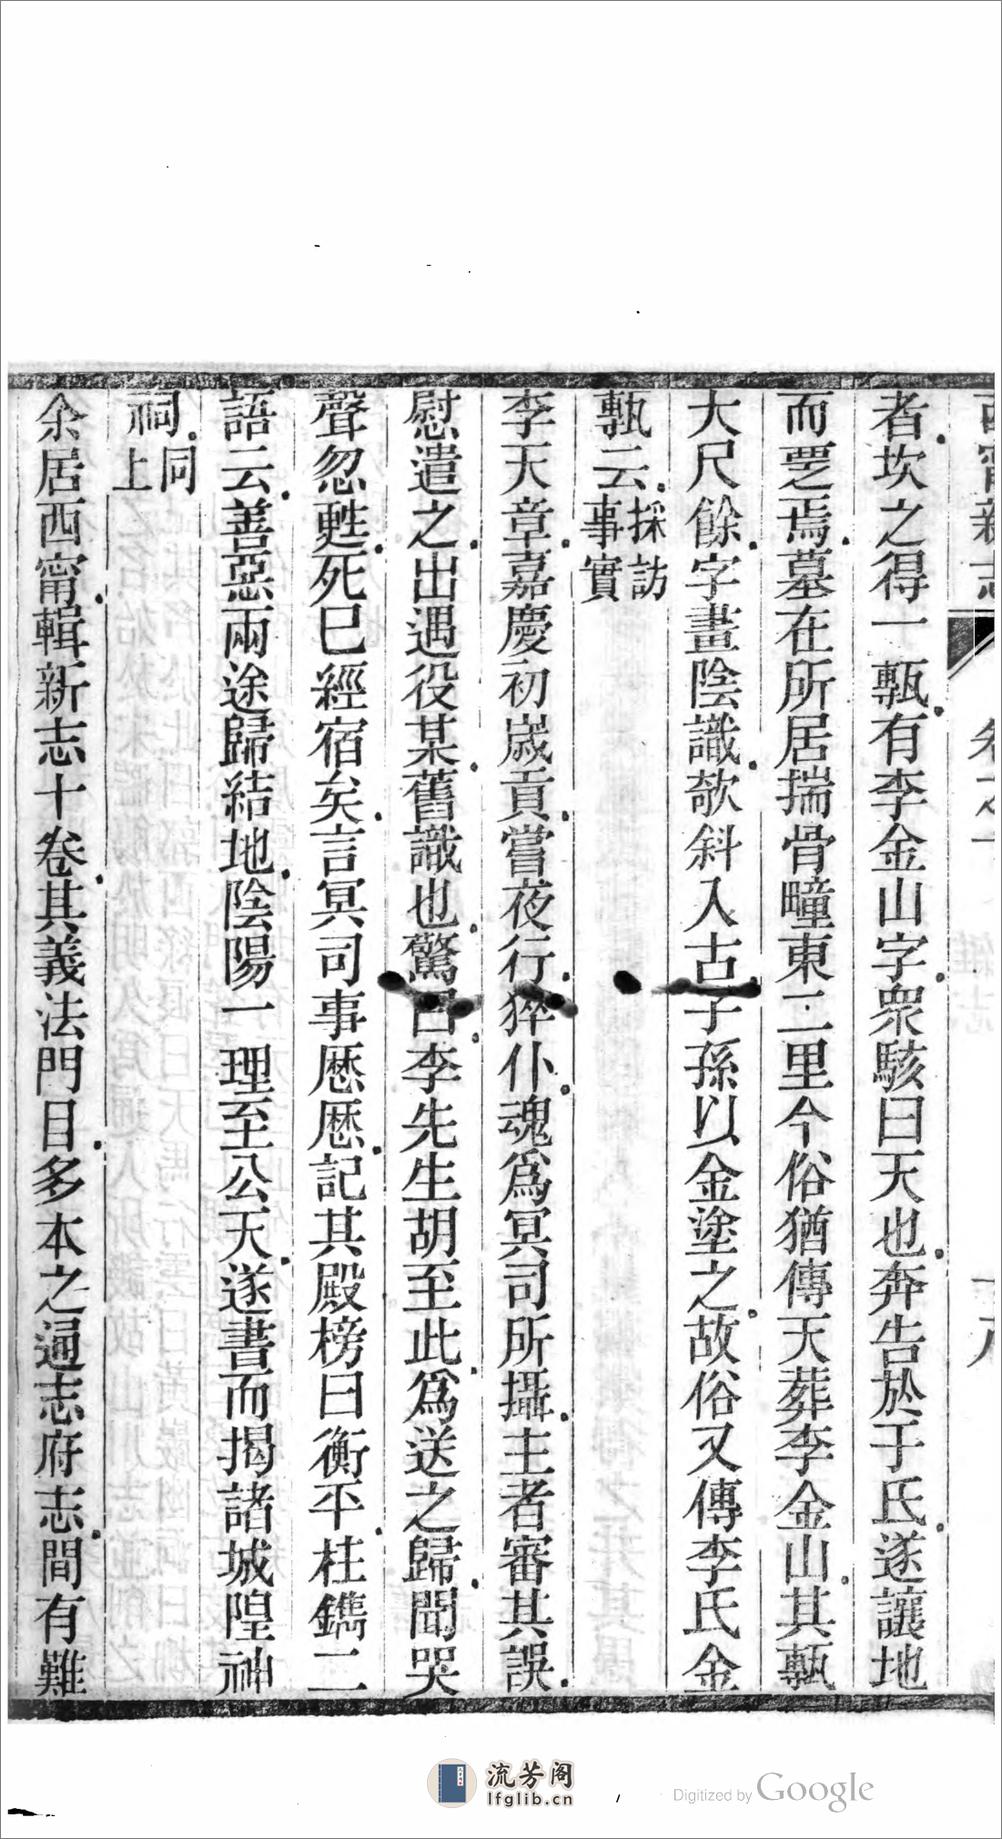 者坎之得一甎有李金山字衆駭曰天也奔告於于氏遂讓地
而窆焉墓在所居揣骨疃東二里今俗猶傳天葬李金山其甎
大尺餘字畫陰識欹斜入古子孫以金塗之故俗又傳李氏金
甎云採訪事實
李天章嘉慶初歲貢嘗夜行猝仆魂爲冥司所攝主者審其誤
慰遣之出遇役某舊識也驚曰李先生胡至此爲送之歸聞哭
聲忽甦死巳經宿矣言冥司事歷歷記其殿榜曰衡平柱鐫二
語云善惡兩途歸結地陰陽一理至公天遂書而揭諸城隍神
祠同上
余居西甯輯新志十卷其義法門目多本之通志府志間有難
流芳阁
lfglib.cn
Digitized by Google